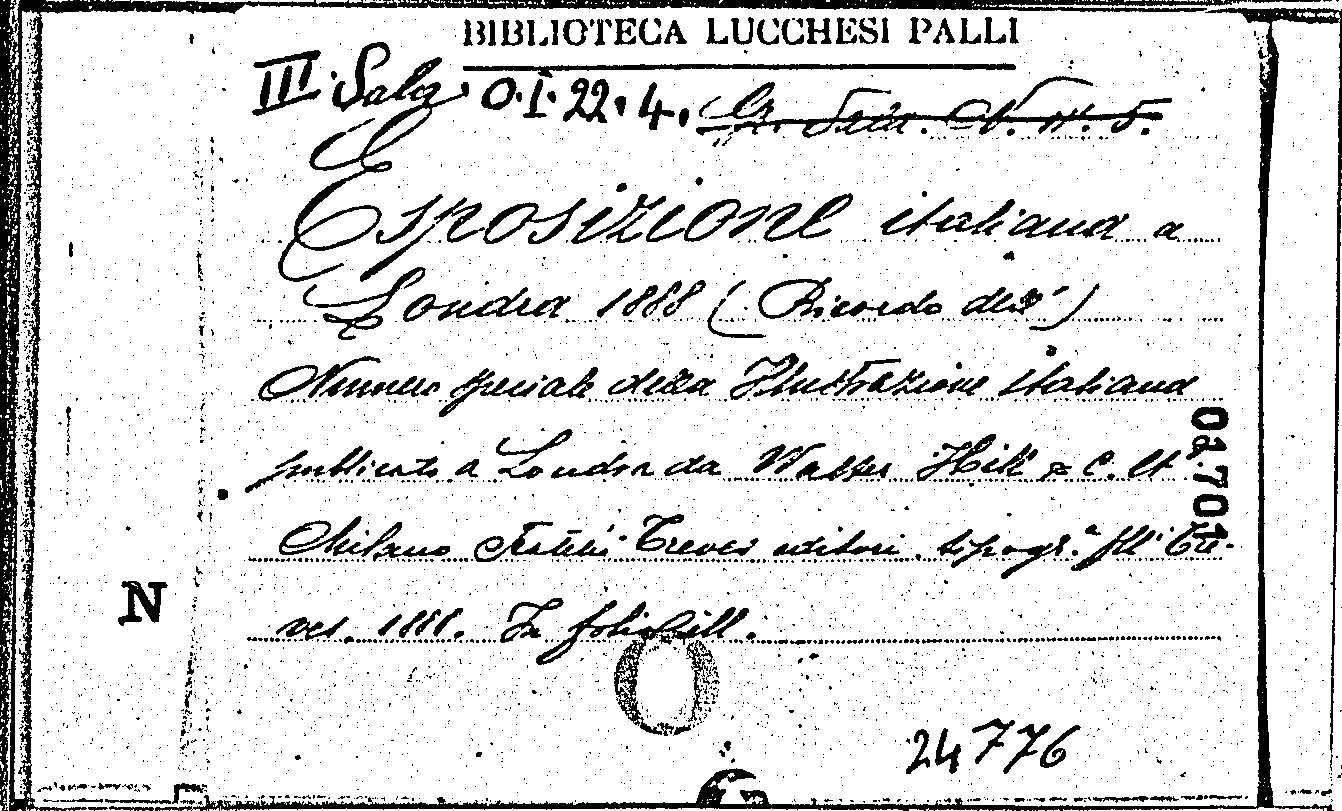 BIBLIOTECA LUCCHESI PALLI
III Sala O.I.22.4.
Esposizione italiana a
Londra 1888 (Ricordo dell')
Numero speciale della Illustrazione italiana
publicato a Londra da Walter Hill & C. Lt
Milano Fratelli Treves editori. tipogr.ª flli Tre-
ves. 1888. In folio ill.
01.701
N
24776